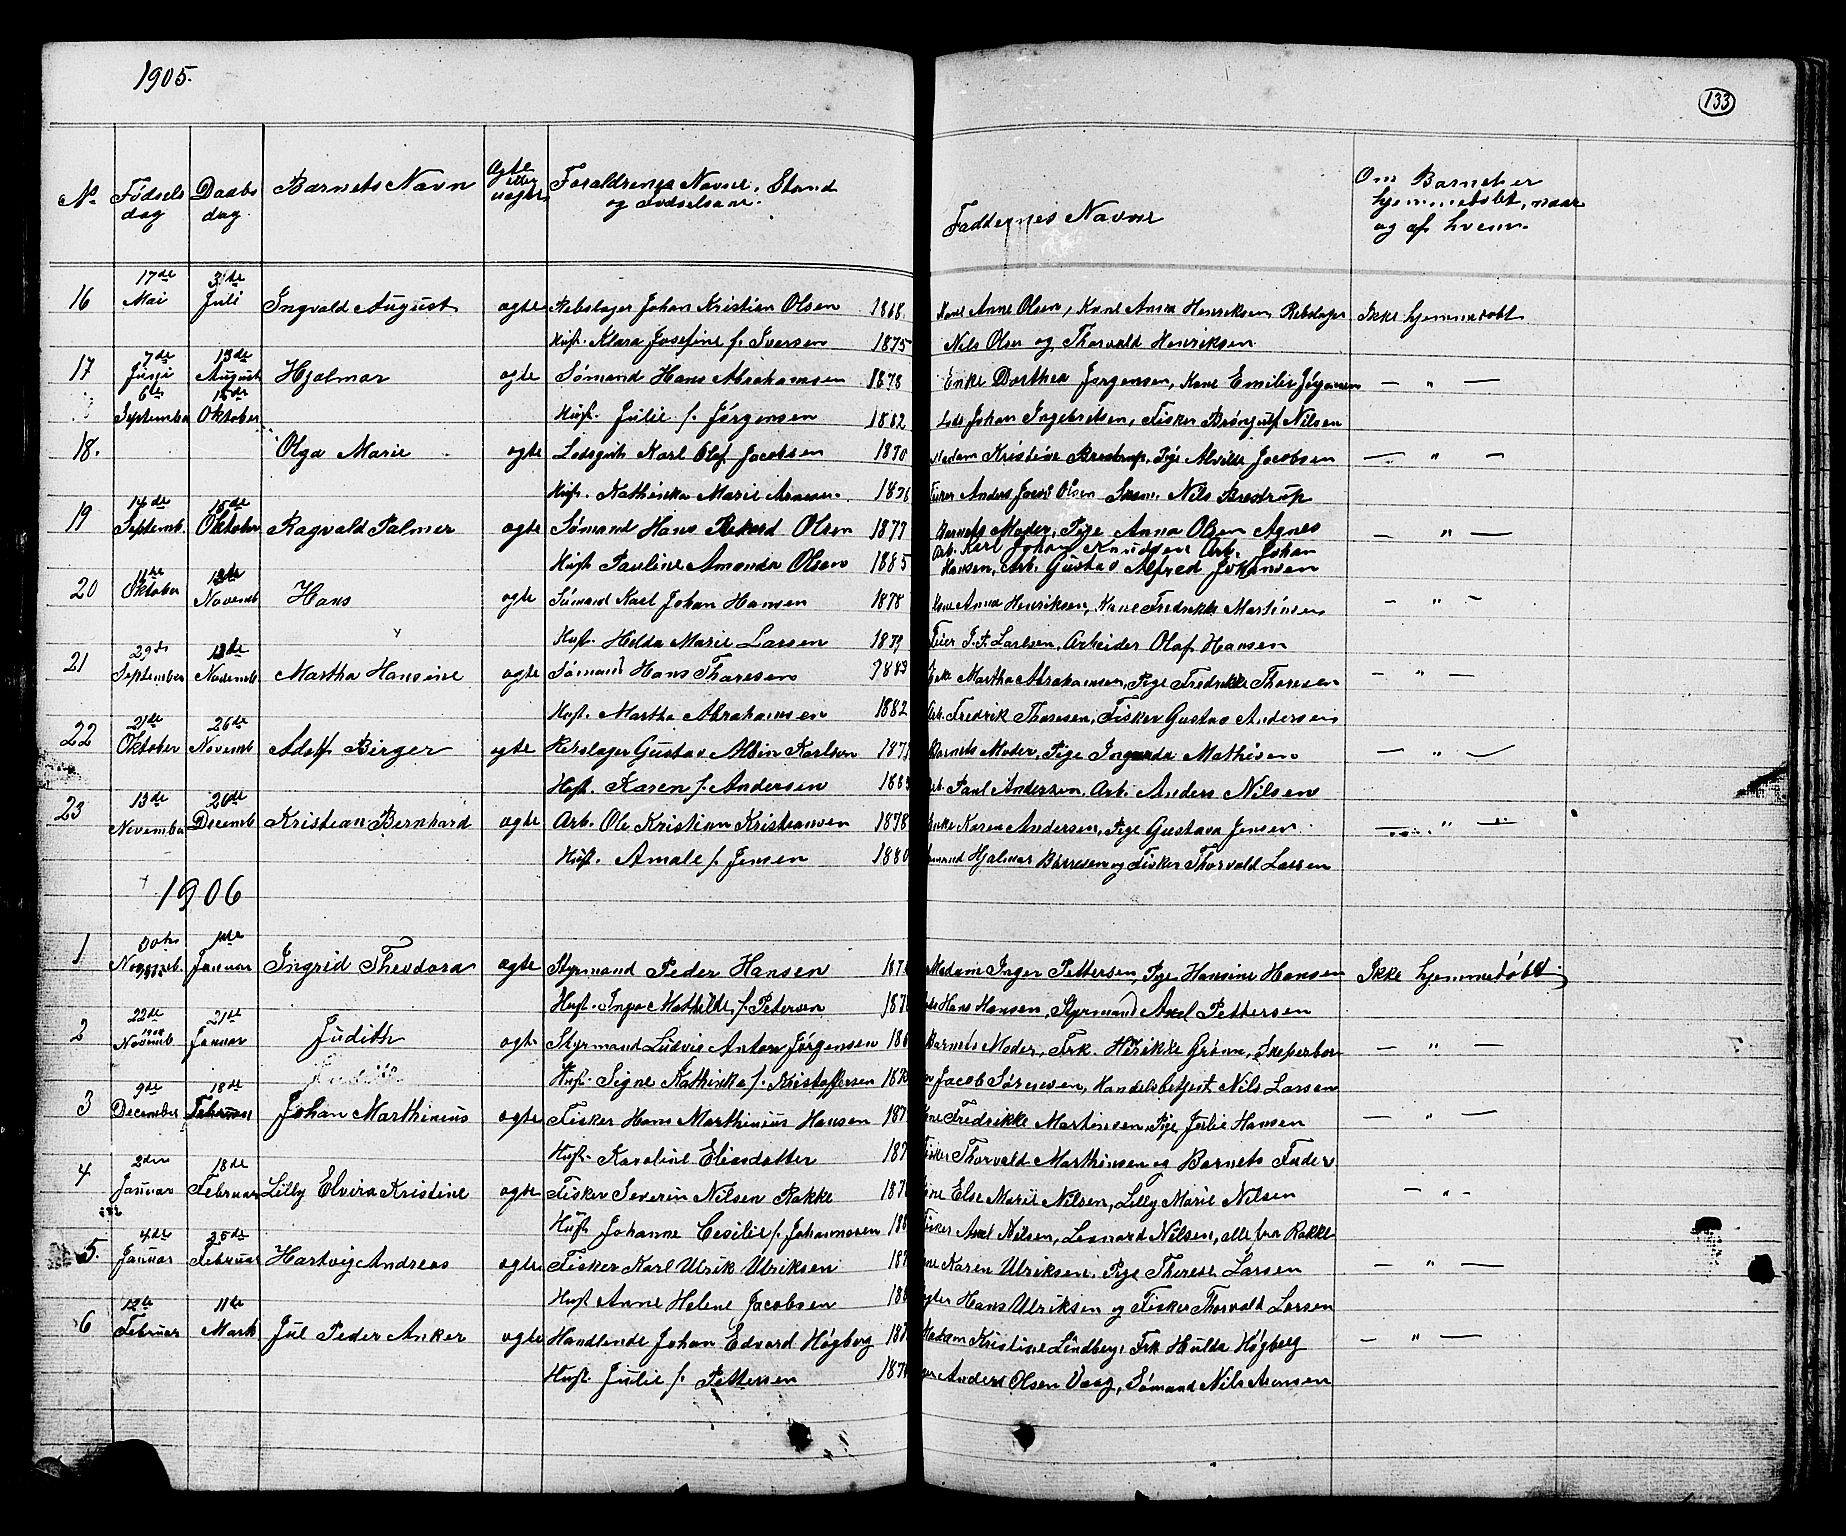 1905.
133
No
Fødsels dag
Daabs dag
Barnets Navn
Ægte eller uægte
Forældrenes Navne, Stand og Fødselsaar.
Faddernes Navne
Om Barnet er hjemmedøbt, naar og af hvem.
16 17de Mai 3die Juli Ingvald August ægte Rebslager Johan Kristian Olsen 1868 Kone Anne Olsen, Kone Anna Henriksen Rebslager Ikke hjemmedøbt
Hust. Klara Josefine f. Iversen 1875 Nils Olsen og Thorvald Henriksen
17 7de Juni 13de August Hjalmar ægte Sømand Hans Abrahamsen 1878 Enke Dorthea Jørgensen, Kone Emilie Jørgensen — " —
6te September 15de Oktober Hust. Julie f. Jørgensen 1882 Lods Johan Ingebretsen, Fisker Brønjulf Nilsen
18. Olga Marie ægte Lodsgut Karl Olaf Jacobsen 1870 Madam Kristine Brestrup, Pige Alvilde Jacobsen — " —
Hust. Kathinka Marie Arnesen 1876 Anders Jacob Olsen Nils Brestrup
19 14de Septemb. 15de Oktober Ragvald Palmer ægte Sømand Hans Rikard Olsen 1877 Barnets Moder, Pige Anna Olsen Agnes — " —
Arb. Karl Johan Knudsen Arb. Johan
Hust. Pauline Amanda Olsen 1885 Hansen, Arb. Gustav Alfred Johansen
20 11te Oktober 12de Novemb Hans ægte Sømand Karl Johan Hansen 1878 Kone Anna Henriksen, Kone Fredrikke Martinsen — " —
Hust. Helda Marie Larsen 1879 Feier J. F. Carlsen, Arbeider Olaf Hansen
21 29de September 12de Novemb. Martha Hansine ægte Sømand Hans Thoresen 1883 Enke Martha Abrahamsen, Pige Fredrikke Thoresen — " —
Hust. Martha Abrahamsen 1882 Arb. Fredrik Thoresen, Fisker Gustav Andersen
22 21de Oktober 26de Novemb Adolf Birger ægte Rebslager Gustav Albin Karlson 187 Barnets Moder, Pige Ingvarda Mathisen — " —
Hust. Karen f. Andersen 188 Arb. Paul Andersen, Arb. Anders Nilsen
23 13de November 26de Decemb Kristian Bernhard ægte Arb. Ole Kristian Kristiansen 1878 Enke Karen Andersen, Pige Gustava Jensen — " —
Hust. Amale f. Jensen 1880 Sømand Hjalmar Børresen og Fisker Thorvald Larsen
1906
1 Novemb. Januar Ingrid Theodora ægte Styrmand Peder Hansen 187 Madame Inger Pettersen, Pige Hansine Hansen Ikke hjemmedøbt
Hust. Inga Mathilde f. Petersen 187 Hans Hansen, Styrmand Axel Pettersen
2 22de Novemb 21de Januar Judith ægte Styrmand Ludvig Anton Jørgensen 186 Barnets Moder, Frk. Hirikke Grøne, Skeperbor — " —
Hust. Signe Kathinka f. Kristoffersen Jacob Sørensen, Handelsbetjent Nils Larsen
3 9de December 18de Februar Johan Marthinius ægte Fisker Hans Marthinius Hansen 187 Kone Fredrikke Martinsen, Pige Julie Hansen — " —
Hust. Karoline Eliasdatter 187 Fisker Thorvald Marthinsen og Barnets Fader
4 2den Januar 18de Februar Lilly Elvira Kristine ægte Fisker Severin Nilsen Rakke 187 Kone Else Marie Nilsen, Lilly Marie Nilsen — " —
Hust. Johanne Cesilie f. Johannesen 18 Fisker Axel Nilsen, Leonard Nilsen, alle fra Rakke
5. 4de Januar 25de Februar Hartvig Andreas ægte Fisker Karl Ulrik Ulriksen 187 Kone Karen Ulriksen, Pige Therese Larsen — " —
Hust Anne Helene Jacobsen 18 Hans Ulriksen og Fisker Thorvald Larsen
6 12te Februar 11te Marts Jul Peder Anker ægte Handlende Johan Edvard Høgberg 187 Madam Kristine Lindberg, Frk Hulda Høgberg — " —
Hust. Julie f. Pettersen 187 Anders Olsen Vaag, Sømand Nils Aronsen